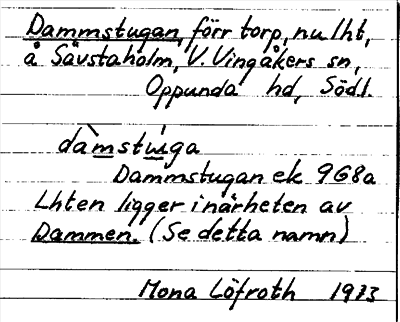 Dammstugan, förr torp, nu lht,
å Sävstaholm, V. Vingåkers sn,
Oppunda hd, Södl.
dàmstúga
Dammstugan ek 9G8a
Lhten ligger i närheten av
Dammen. (Se detta namn)
Mona Löfroth 1973